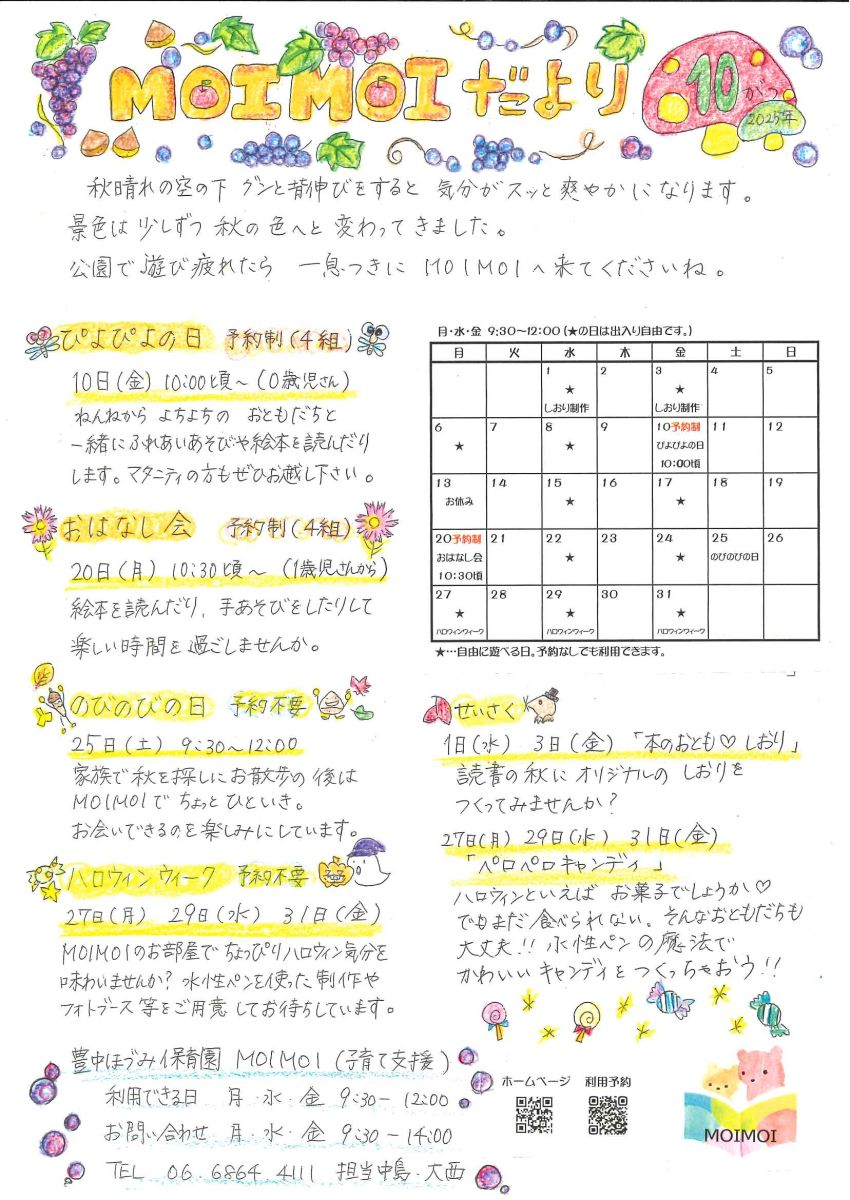 MOIMOIだより
10がつ
2025年
秋晴れの空の下 グンと背伸びをすると 気分がスッと爽やかになります。
景色は少しずつ秋の色へと変わってきました。
公園で遊び疲れたら 一息つきに MOIMOIへ来てくださいね。
ぴよぴよの日 予約制(4組)
10日(金) 10:00頃〜 (0歳児さん)
ねんねから よちよちの おともだちと
一緒にふれあいあそびや絵本を読んだり
します。マタニティの方もぜひお越し下さい。
おはなし会 予約制(4組)
20日(月) 10:30頃〜 (1歳児さんから)
絵本を読んだり、手あそびをしたりして
楽しい時間を過ごしませんか。
のびのびの日 予約不要
25日(土) 9:30〜12:00
家族で秋を探しにお散歩の後は
MOIMOIでちょっとひといき。
お会いできるのを楽しみにしています。
ハロウィンウィーク 予約不要
27日(月) 29日(水) 31日(金)
MOIMOIのお部屋でちょっぴりハロウィン気分を
味わいませんか?水性ペンを使った制作や
フォトブース等をご用意してお待ちしています。
月・水・金 9:30〜12:00(★の日は出入り自由です。)
月 火 水 木 金 土 日
1 2 3 4 5
★ ★
しおり制作 しおり制作
6 7 8 9 10予約制 11 12
★ ★ ぴよぴよの日
10:00頃
13 14 15 16 17 18 19
お休み ★ ★
20予約制 21 22 23 24 25 26
おはなし会 ★ ★ のびのびの日
10:30頃
27 28 29 30 31
★ ★ ★
ハロウィンウィーク ハロウィンウィーク ハロウィンウィーク
★…自由に遊べる日。予約なしでも利用できます。
せいさく
1日(水) 3日(金) 「本のおとも♡しおり」
読書の秋にオリジナルの しおりを
つくってみませんか?
27日(月) 29日(水) 31日(金)
「ペロペロキャンディ」
ハロウィンといえば お菓子でしょうか♡
でもまだ食べられない。そんなおともだちも
大丈夫!! 水性ペンの魔法で
かわいいキャンディをつくっちゃおう!!
豊中ほづみ保育園 MOIMOI (子育て支援)
利用できる日 月・水・金 9:30-12:00
お問い合わせ 月・水・金 9:30-14:00
TEL 06.6864 4111 担当中島・大西
ホームページ 利用予約
MOIMOI